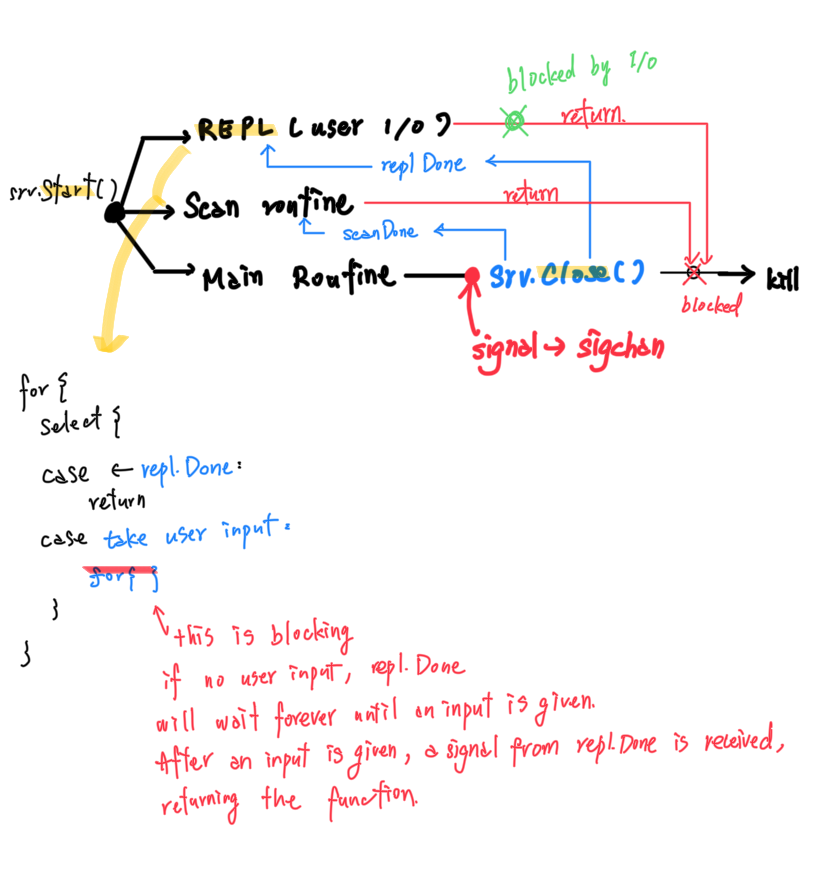 blocked by I/O
REPL (user I/O)
return.
repl Done
srv.Start()
Scan routine
return
scanDone
Main Routine
Srv.Close()
kill
blocked
signal → sigchan
for {
select {
case ← repl.Done:
return
case take user input:
for{ }
}
}
this is blocking
if no user input, repl.Done
will wait forever until an input is given.
After an input is given, a signal from repl.Done is received,
returning the function.